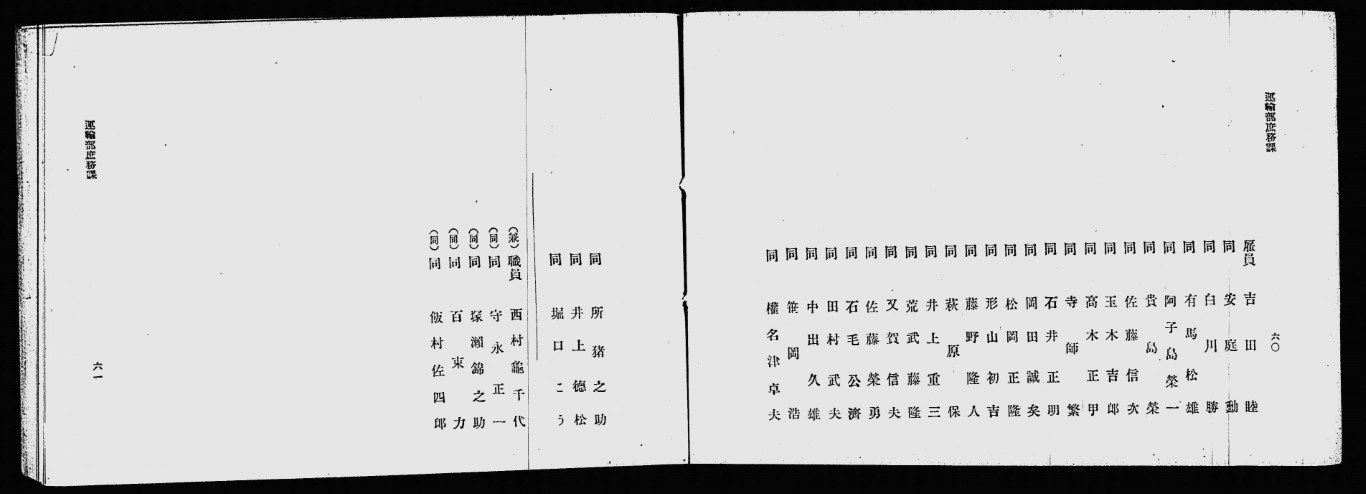 運輸部庶務課
六〇
雇員 吉田睦
同 安庭勳
同 臼川勝
同 有馬松雄
同 阿子島榮一
同 貴島榮
同 佐藤信次
同 玉木吉郎
同 高木正甲
同 寺師繁
同 石井正明
同 岡田誠矣
同 松岡正隆
同 形山初吉
同 藤野隆人
同 萩原保
同 井上重三
同 荒武藤隆
同 又賀信夫
同 佐藤榮勇
同 石毛公濟
同 田村武夫
同 中出久雄
同 笹岡浩
同 權名津卓夫
同 所猪之助
同 井上德松
同 堀口こう
(兼)職員 西村龜千代
(同)同 守永正一
(同)同 塚瀨錦之助
(同)同 百束力
(同)同 飯村佐四郎
運輸部庶務課
六一